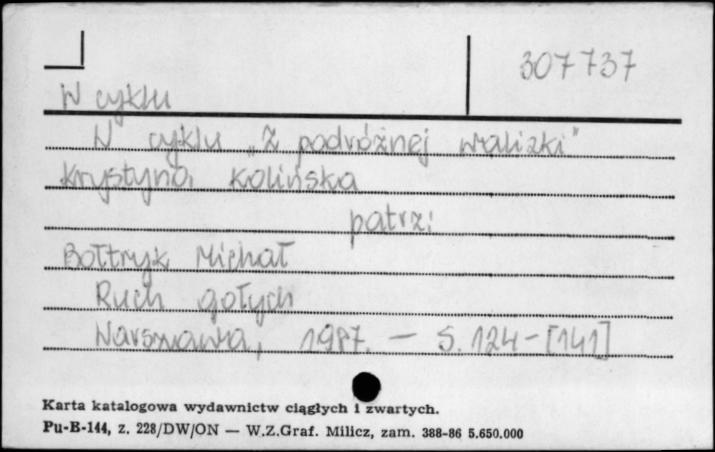 307737
W cyklu
W cyklu „Z podróżnej walizki"
Krystyna Kolińska
patrz:
Bołtryk Michał
Ruch gołych
Warszawa, 1987. — S. 124-[141]
Karta katalogowa wydawnictw ciągłych i zwartych.
Pu-B-144, z. 228/DW/ON — W.Z.Graf. Milicz, zam. 388-86 5.650.000